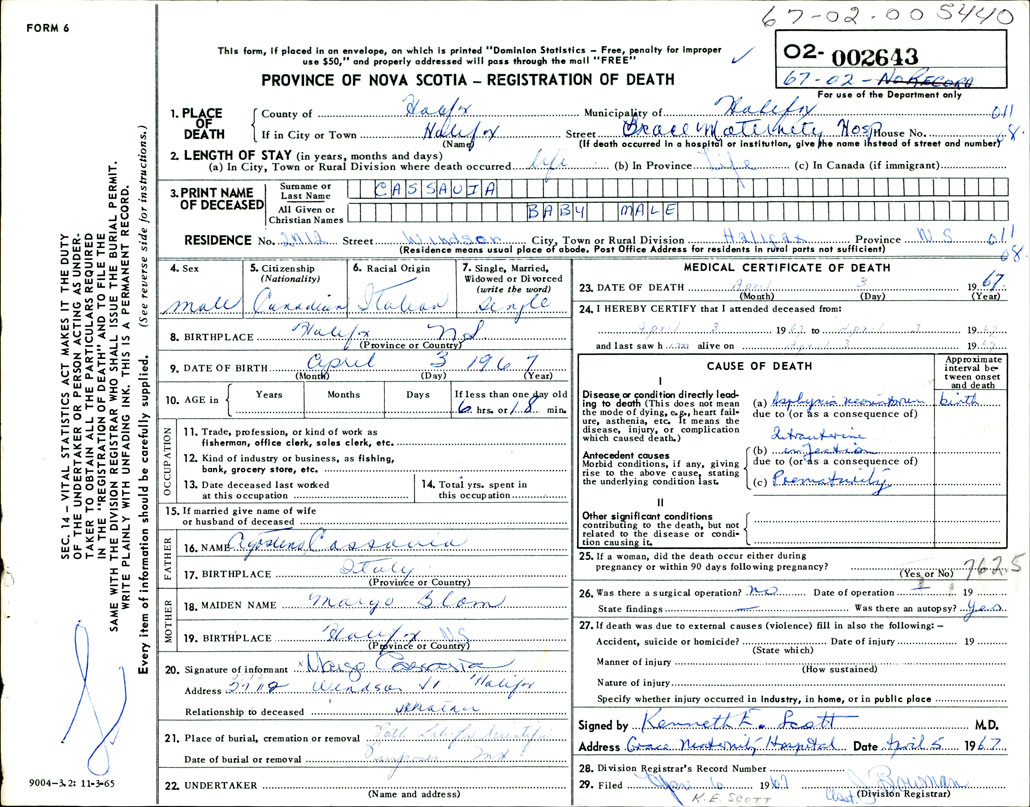 FORM 6
67-02.005440
This form, if placed in an envelope, on which is printed "Dominion Statistics – Free, penalty for improper
use $50," and properly addressed will pass through the mail "FREE"
PROVINCE OF NOVA SCOTIA – REGISTRATION OF DEATH
02- 002643
67-02- No Record
For use of the Department only
1. PLACE OF DEATH
County of Halifax Municipality of Halifax 011
If in City or Town Halifax Street Grace Maternity Hosp House No. 08.
(Name) (If death occurred in a hospital or institution, give the name instead of street and number)
2. LENGTH OF STAY (in years, months and days)
(a) In City, Town or Rural Division where death occurred life (b) In Province Life (c) In Canada (if immigrant)
3. PRINT NAME OF DECEASED
Surname or Last Name CASSAVIA
All Given or Christian Names BABY MALE
RESIDENCE No. 2712 Street Windsor City, Town or Rural Division Halifax Province N S 011
(Residence means usual place of abode. Post Office Address for residents in rural parts not sufficient) 08.
4. Sex
male
5. Citizenship (Nationality)
Canadian
6. Racial Origin
Italian
7. Single, Married, Widowed or Divorced (write the word)
single
8. BIRTHPLACE Halifax NS
(Province or Country)
9. DATE OF BIRTH April 3 1967
(Month) (Day) (Year)
10. AGE in Years Months Days If less than one day old
6 hrs. or 18 min.
OCCUPATION
11. Trade, profession, or kind of work as
fisherman, office clerk, sales clerk, etc.
12. Kind of industry or business, as fishing,
bank, grocery store, etc.
13. Date deceased last worked
at this occupation
14. Total yrs. spent in
this occupation
15. If married give name of wife
or husband of deceased
FATHER
16. NAME Agostino Cassavia
17. BIRTHPLACE Italy
(Province or Country)
MOTHER
18. MAIDEN NAME Margo Blom
19. BIRTHPLACE Halifax NS
(Province or Country)
20. Signature of informant x Margo Cassavia
Address Windsor St Halifax
Relationship to deceased Mother
21. Place of burial, cremation or removal
Date of burial or removal
22. UNDERTAKER
(Name and address)
MEDICAL CERTIFICATE OF DEATH
23. DATE OF DEATH April 3 1967
(Month) (Day) (Year)
24. I HEREBY CERTIFY that I attended deceased from:
April 3 1967 to April 3 1967
and last saw him alive on April 3 1967
CAUSE OF DEATH
Approximate interval between onset and death
I
Disease or condition directly lead-
ing to death (This does not mean
the mode of dying, e.g., heart fail-
ure, asthenia, etc. It means the
disease, injury, or complication
which caused death.)
(a) Asphyxia neonatorum birth
due to (or as a consequence of)
Intrauterine
Antecedent causes
Morbid conditions, if any, giving
rise to the above cause, stating
the underlying condition last.
(b) infection
due to (or as a consequence of)
(c) Prematurity
II
Other significant conditions
contributing to the death, but not
related to the disease or condi-
tion causing it.
25. If a woman, did the death occur either during
pregnancy or within 90 days following pregnancy?
(Yes or No)
762.5
26. Was there a surgical operation? no Date of operation 19
State findings — Was there an autopsy? Yes
27. If death was due to external causes (violence) fill in also the following: –
Accident, suicide or homicide? Date of injury 19
(State which)
Manner of injury
(How sustained)
Nature of injury
Specify whether injury occurred in industry, in home, or in public place
Signed by Kenneth E. Scott M.D.
Address Grace Maternity Hospital Date April 5 1967
28. Division Registrar's Record Number
29. Filed Apr 6 1967 Bowman
(Division Registrar)
K. E. SCOTT
SEC. 14 – VITAL STATISTICS ACT MAKES IT THE DUTY
OF THE UNDERTAKER OR PERSON ACTING AS UNDER-
TAKER TO OBTAIN ALL THE PARTICULARS REQUIRED
IN THE "REGISTRATION OF DEATH" AND TO FILE THE
SAME WITH THE DIVISION REGISTRAR WHO SHALL ISSUE THE BURIAL PERMIT.
WRITE PLAINLY WITH UNFADING INK. THIS IS A PERMANENT RECORD.
Every item of information should be carefully supplied. (See reverse side for instructions.)
9004–3.2: 11-3-65